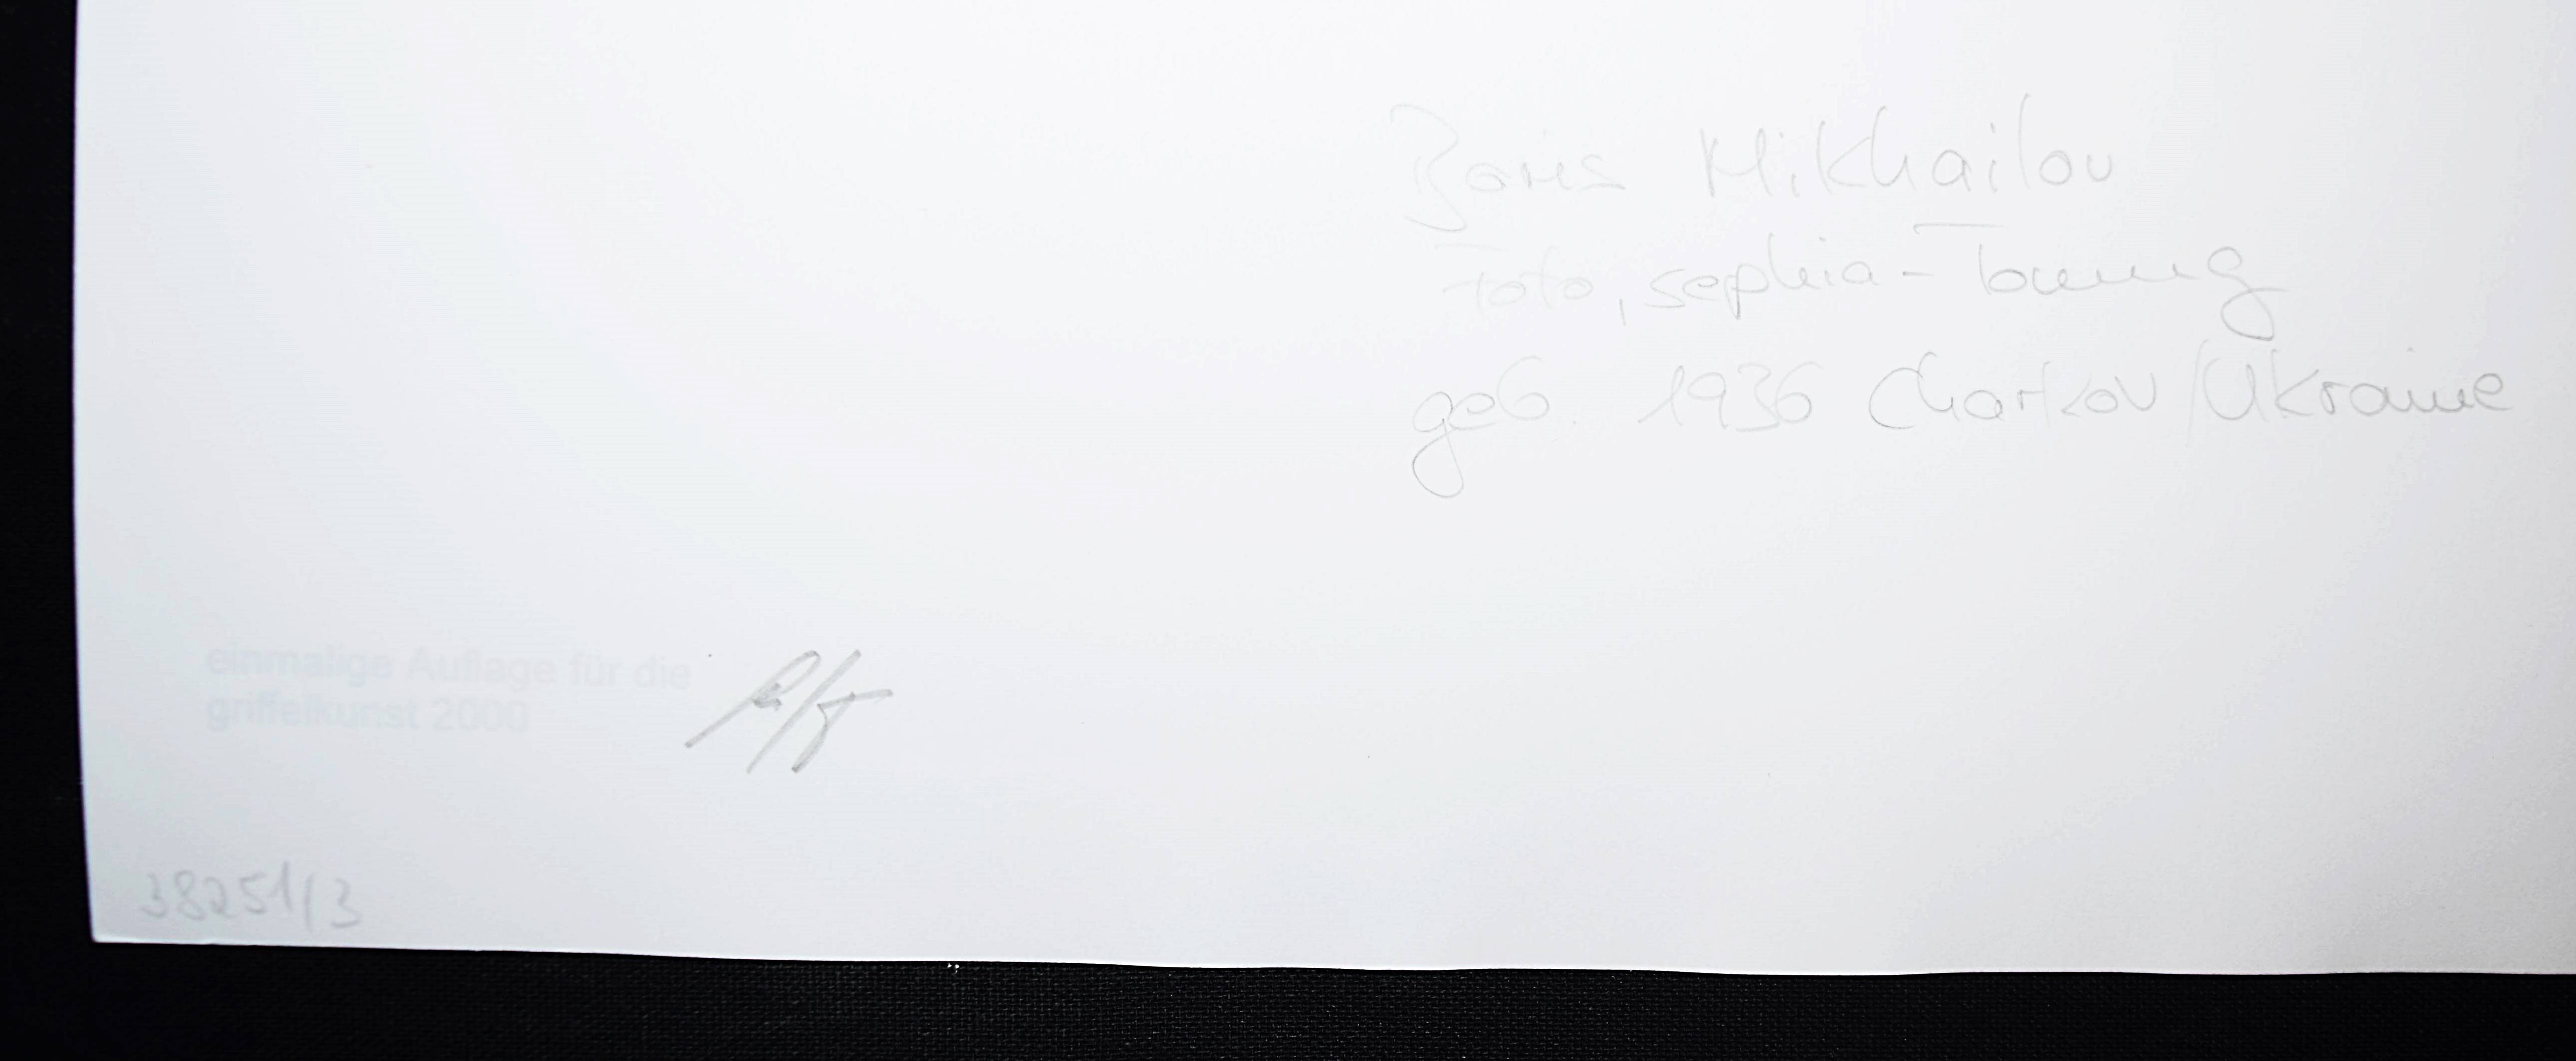 Boris Mikhailov
Foto, sephia-Tonung
geb. 1936 Charkov/Ukraine
einmalige Auflage für die
griffelkunst 2000
38251/3